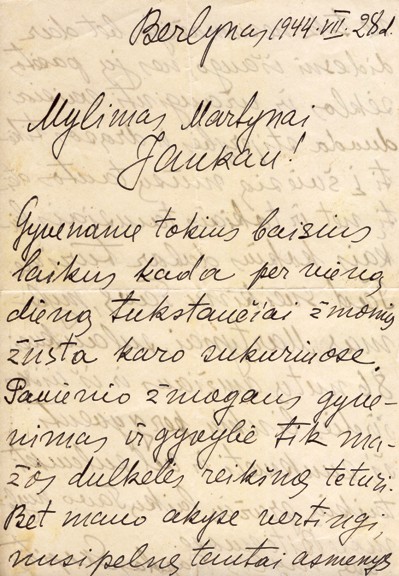 Berlynas 1944.VII.28d.
Mylimas Martynai
Jankau!
Gyvename tokius baisius
laikus kada per vieną
dieną tukstančiai žmonių
žūsta karo sukuriuose.
Pavienio žmogaus gyve-
nimas ir gyvybė tik ma-
žos dulkelės reikšmę teturi.
Bet mano akyse vertingi,
nusipelnę tautai asmenys